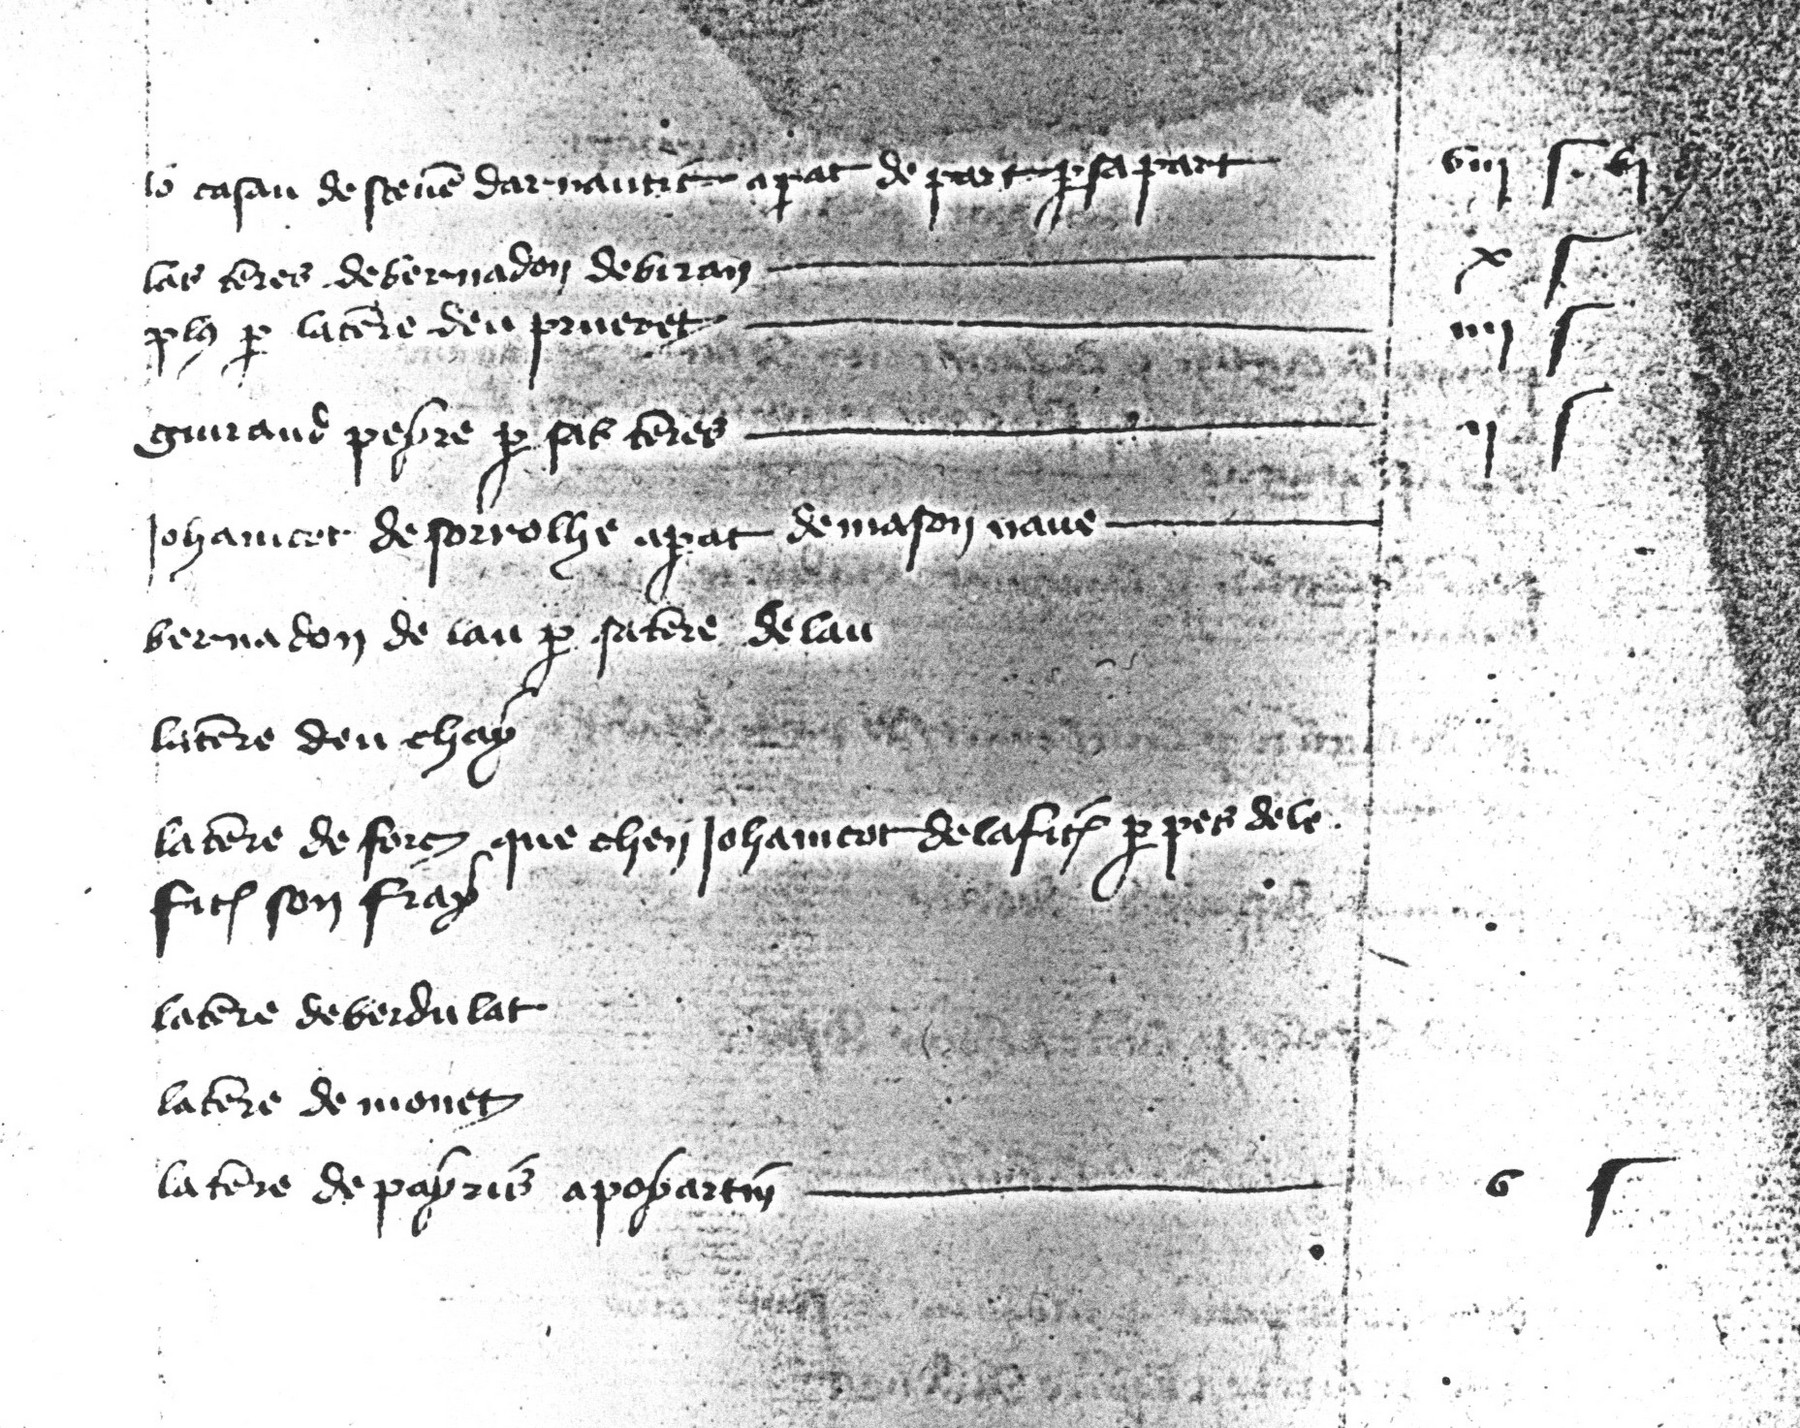 lo casau de steuē darnautic apat de part p sa part viij s. vj
las tēres de bernadon de biran x s
plus p la tēre deu prueret iiij s
guiraud peyre p sas tēres ij s
Johanicot de sorrolhe apat de mason naue
bernadon de lau p sa tēre de lau
la tēre deu chay
la tēre de que then Johanicot de la fite p pes de le
fite son fray
la tēre de berdulat
la tēre de monet
la tēre de payris apoyartin v s